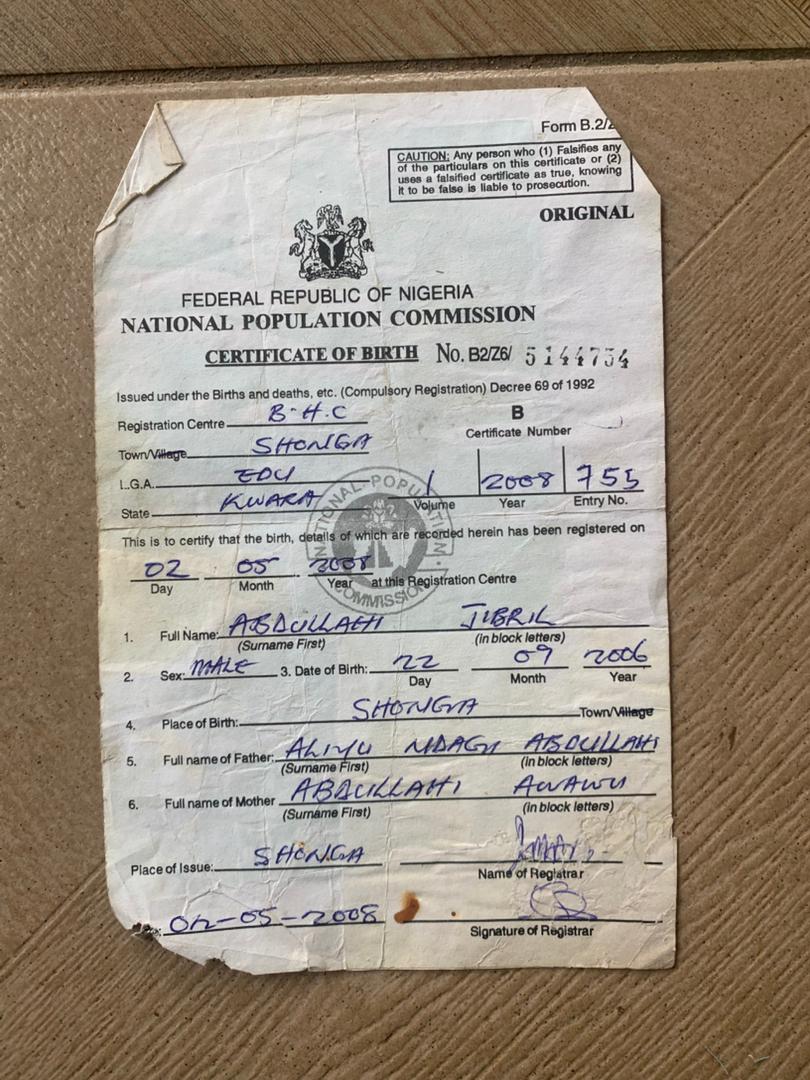 Form B.2/2
CAUTION: Any person who (1) Falsifies any
of the particulars on this certificate or (2)
uses a falsified certificate as true, knowing
it to be false is liable to prosecution.
ORIGINAL
FEDERAL REPUBLIC OF NIGERIA
NATIONAL POPULATION COMMISSION
CERTIFICATE OF BIRTH No. B2/Z6/ 5144754
Issued under the Births and deaths, etc. (Compulsory Registration) Decree 69 of 1992
Registration Centre B.H.C
B
Certificate Number
Town/Village SHONGA
L.G.A. EDU
1 2008 755
Volume Year Entry No.
State KWARA
NATIONAL POPULATION COMMISSION
This is to certify that the birth, details of which are recorded herein has been registered on
02 05 2008
Day Month Year at this Registration Centre
1. Full Name: ABDULLAHI JIBRIL
(Surname First) (in block letters)
2. Sex: MALE 3. Date of Birth: 22 09 2006
Day Month Year
4. Place of Birth: SHONGA Town/Village
5. Full name of Father: ALIYU NDAGI ABDULLAHI
(Surname First) (in block letters)
6. Full name of Mother ABDULLAHI AWAWU
(Surname First) (in block letters)
Place of Issue: SHONGA
Name of Registrar
02-05-2008
Signature of Registrar